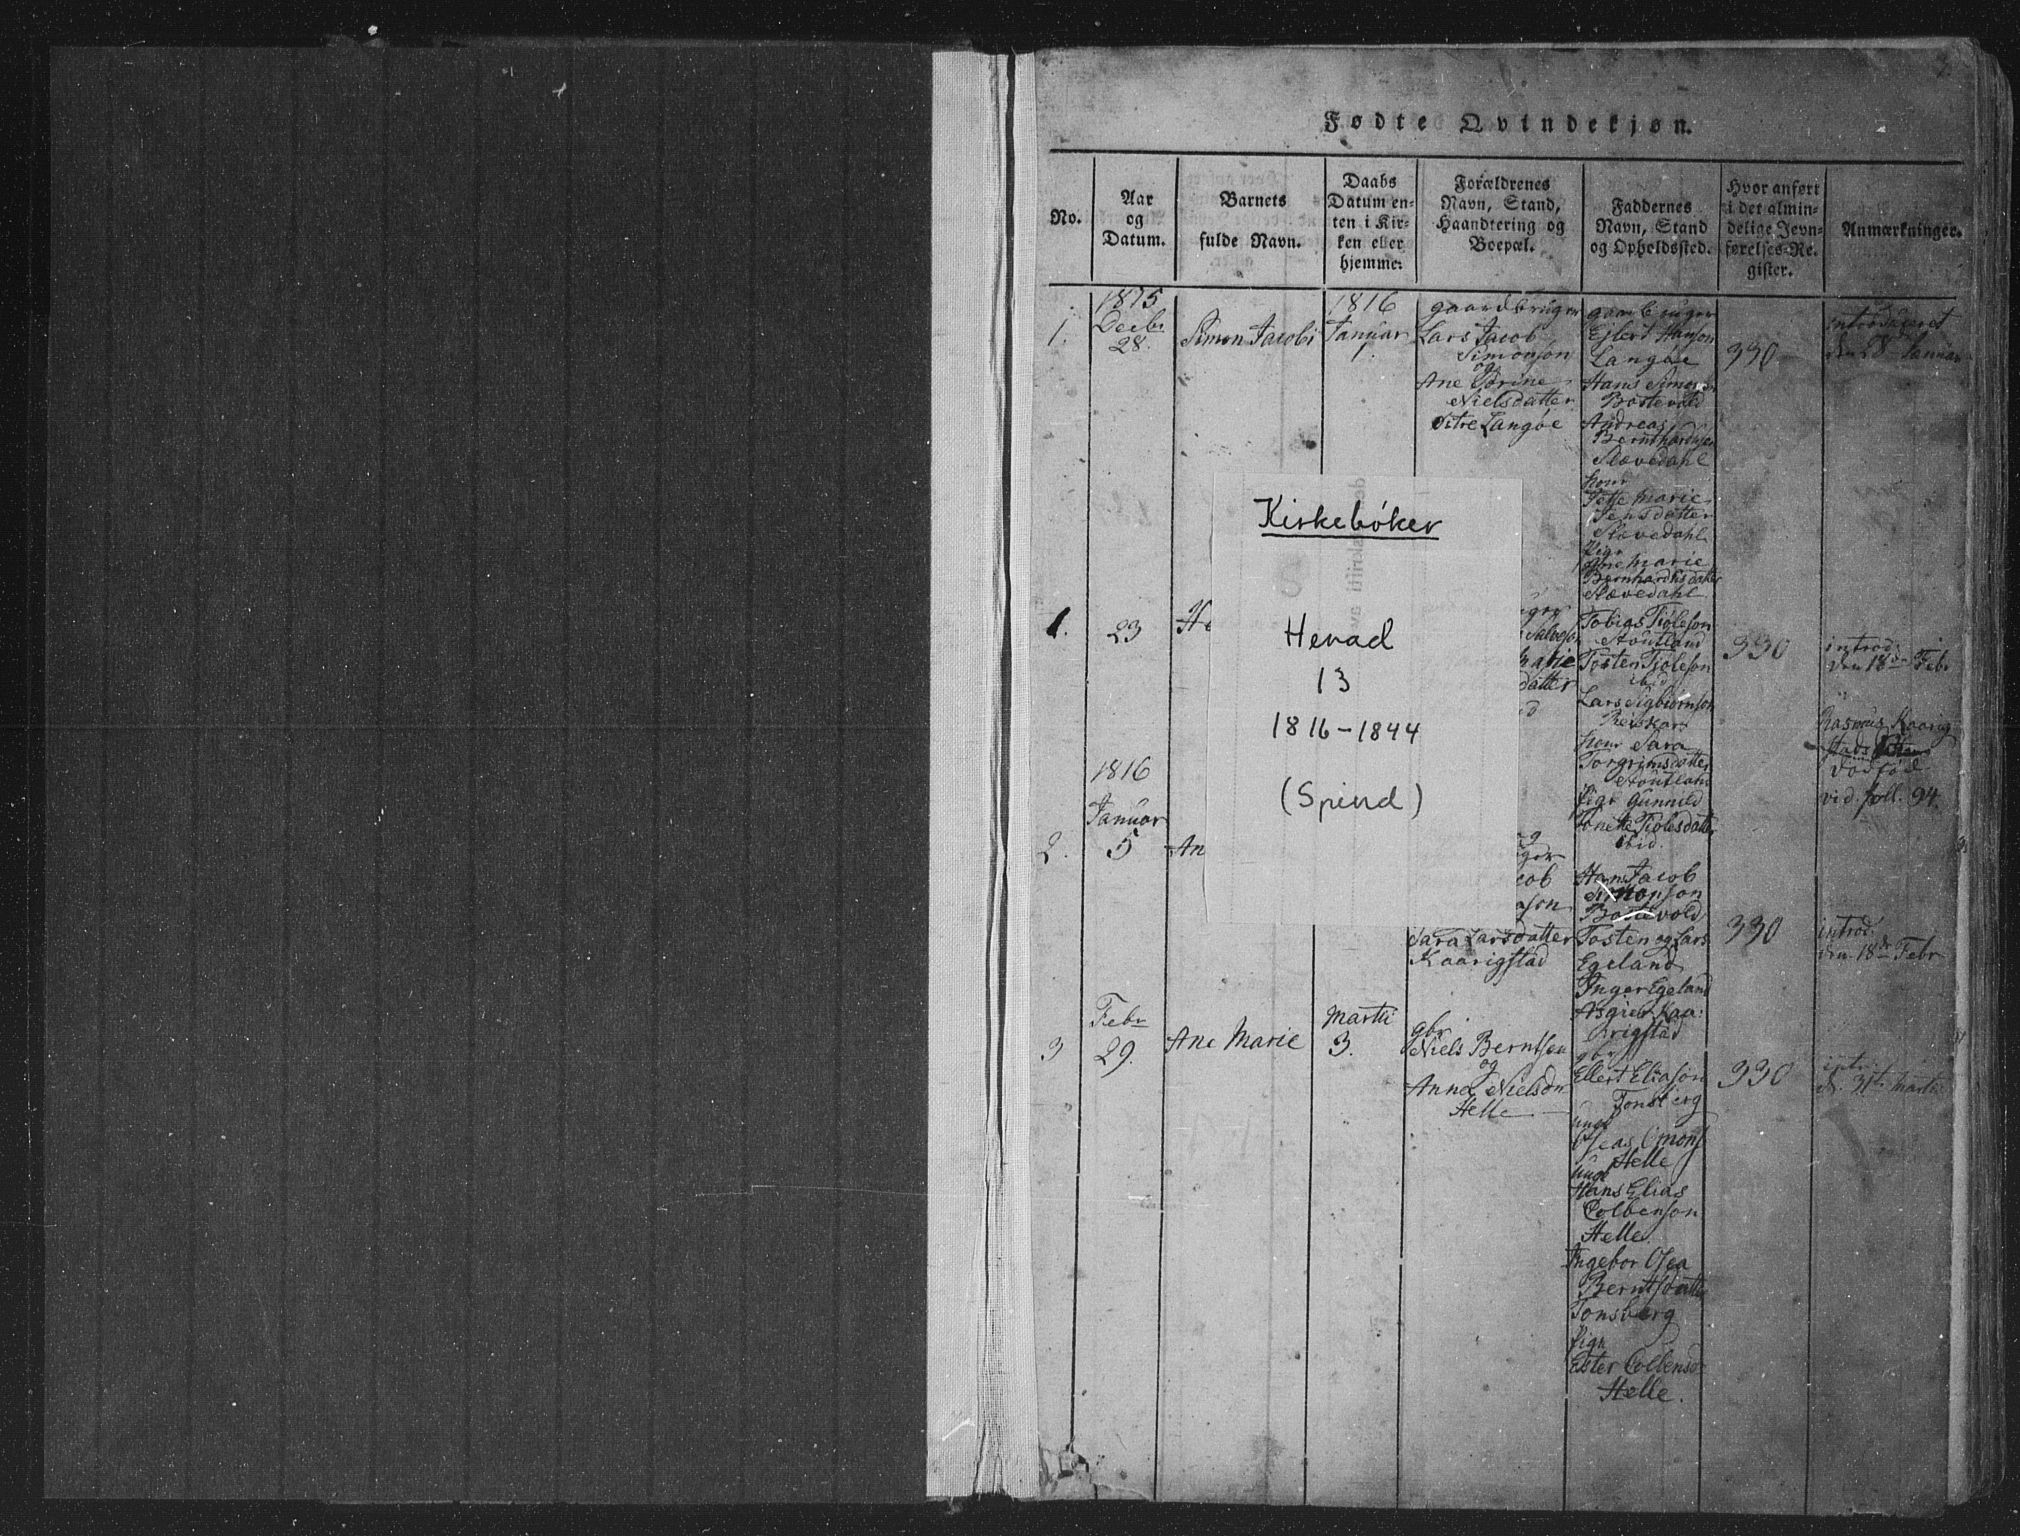 Fødte Qvindekjøn.
No.
Aar
og
Datum.
Barnets
fulde Navn.
Daabs
Datum en-
ten i Kir-
ken eller
hjemme.
Forældrenes
Navn, Stand,
Haandtering og
Boepæl.
Faddernes
Navn, Stand
og Opholdssted.
Hvor anført
i det almin-
delige Jevn-
førelses-Re-
gister.
Anmærkninger.
1.
1815
Decbr
28.
Simon Jacobi
1816
Januar
1.
gaardbruger
Lars Jacob
Simonsøn
og
Ane Serine
Nielsdatter
Langøe
Ejlert Hanson
Langøe
Hans Simons
Bostevold
Andreas
Bernhardsen
Slævedahl
Kone
Marie
Jensdatter
Slævedahl
Pige
Ane Marie
Bernhardsdatter
Slævedahl
330
introduceret
den 28 Januar
1.
23
He
Salveso
Marie
datter
Tobias Tiøleson
Stoutland
Tosten Tioleson
ibid
Lars Sigbiørnson
Reiskar
Kone Sara
Torgrimsdatter
Stoutland
Pige Gunnild
Tiolesdatter
ibid.
330
introd.
den 18de Febr
Rasmus Kaarig
stads
dødfød
vid. foll. 94.
Kirkebøker
Herad
13
1816-1844
(Spind)
2.
1816
Januar
5
An
cob
Sara Larsdatter
Kaarigstad
Hans Jacob
Simonson
Bostevold
Tosten og Lars
Egeland
Inger Egeland
Asgier Kaa-
rigstad
330
introd.
den 18de Febr
3
Febr
29.
Ane Marie
Martii
3.
gbr
Niels Berntsen
og
Anna Nielsdr
Helle
gbr
Ellert Eliason
Tonsberg
ungk
Oseas Omons
Helle
ungk
Hans Elias
Colbenson
Helle.
Ingebor Osea
Berntsdatter
Tonsberg
Pige
Ester Colbensd
Helle.
330
intr.
d. 31te Martii